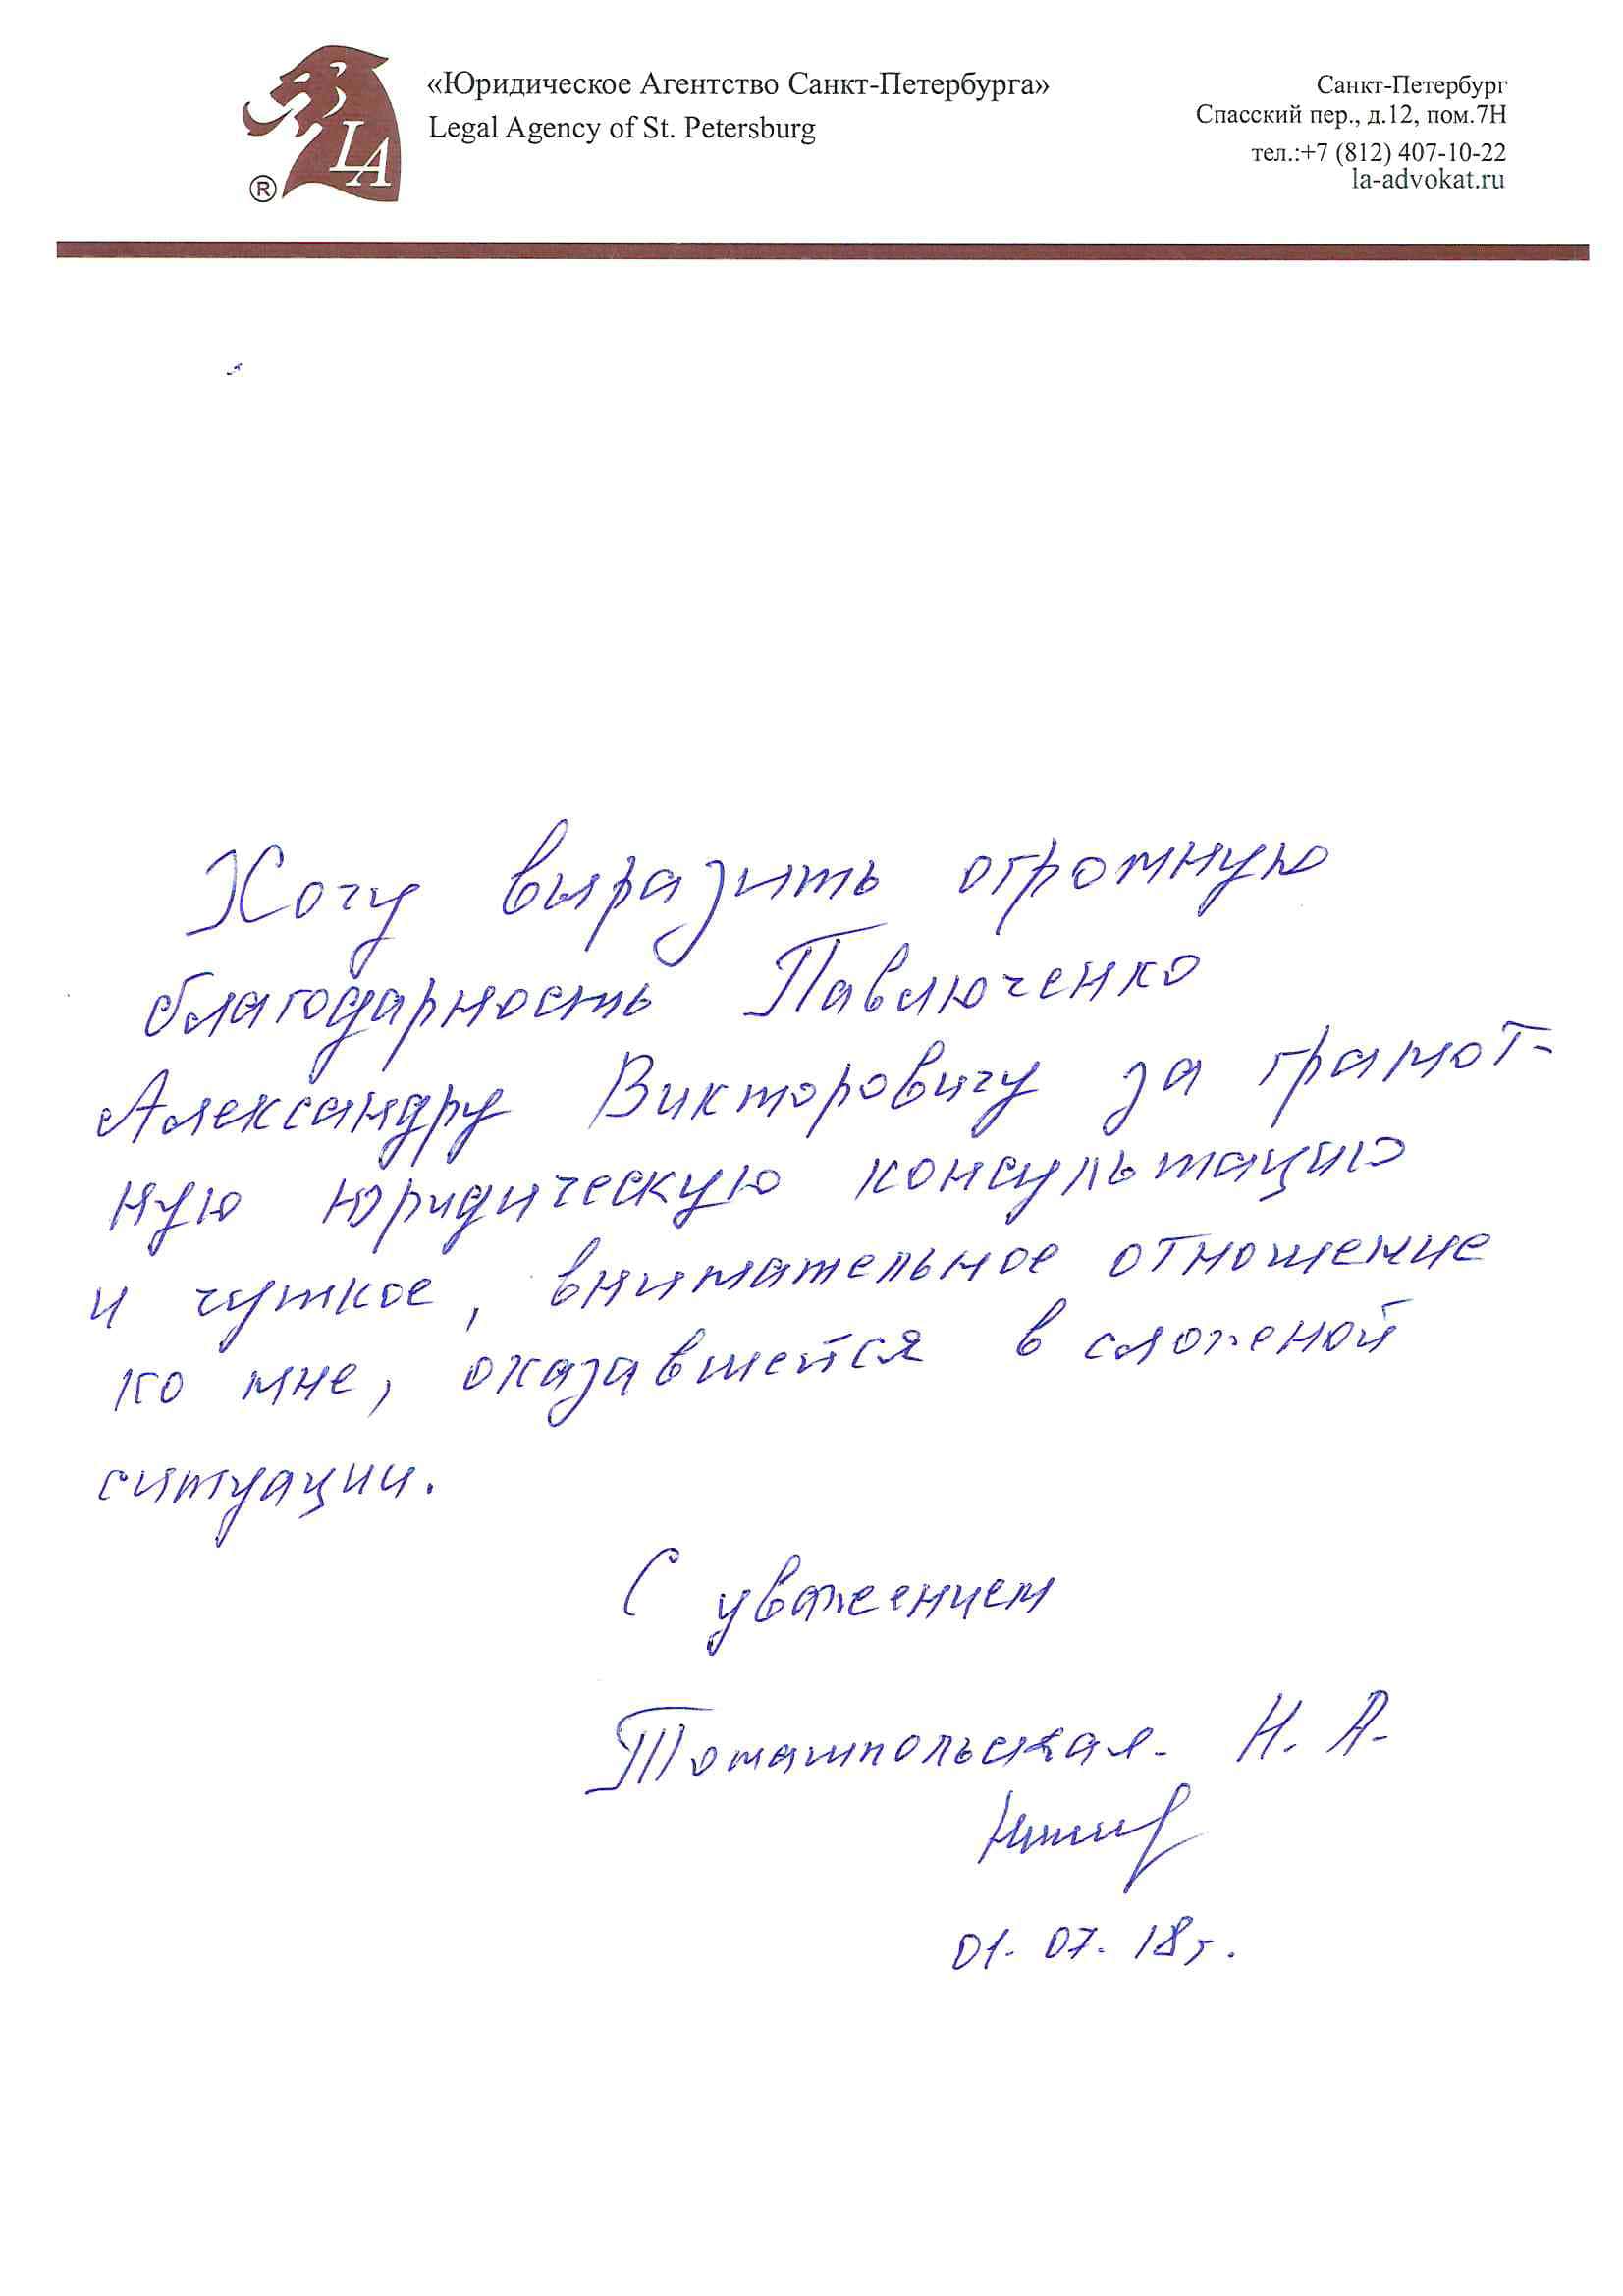 «Юридическое Агентство Санкт-Петербурга»
Legal Agency of St. Petersburg
LA
®
Санкт-Петербург
Спасский пер., д.12, пом.7Н
тел.:+7 (812) 407-10-22
la-advokat.ru
Хочу выразить огромную
благодарность Павлюченко
Александру Викторовичу за грамот-
ную юридическую консультацию
и чуткое, внимательное отношение
ко мне, оказавшейся в сложной
ситуации.
С уважением
Томашпольская. Н. А.
01. 07. 18г.